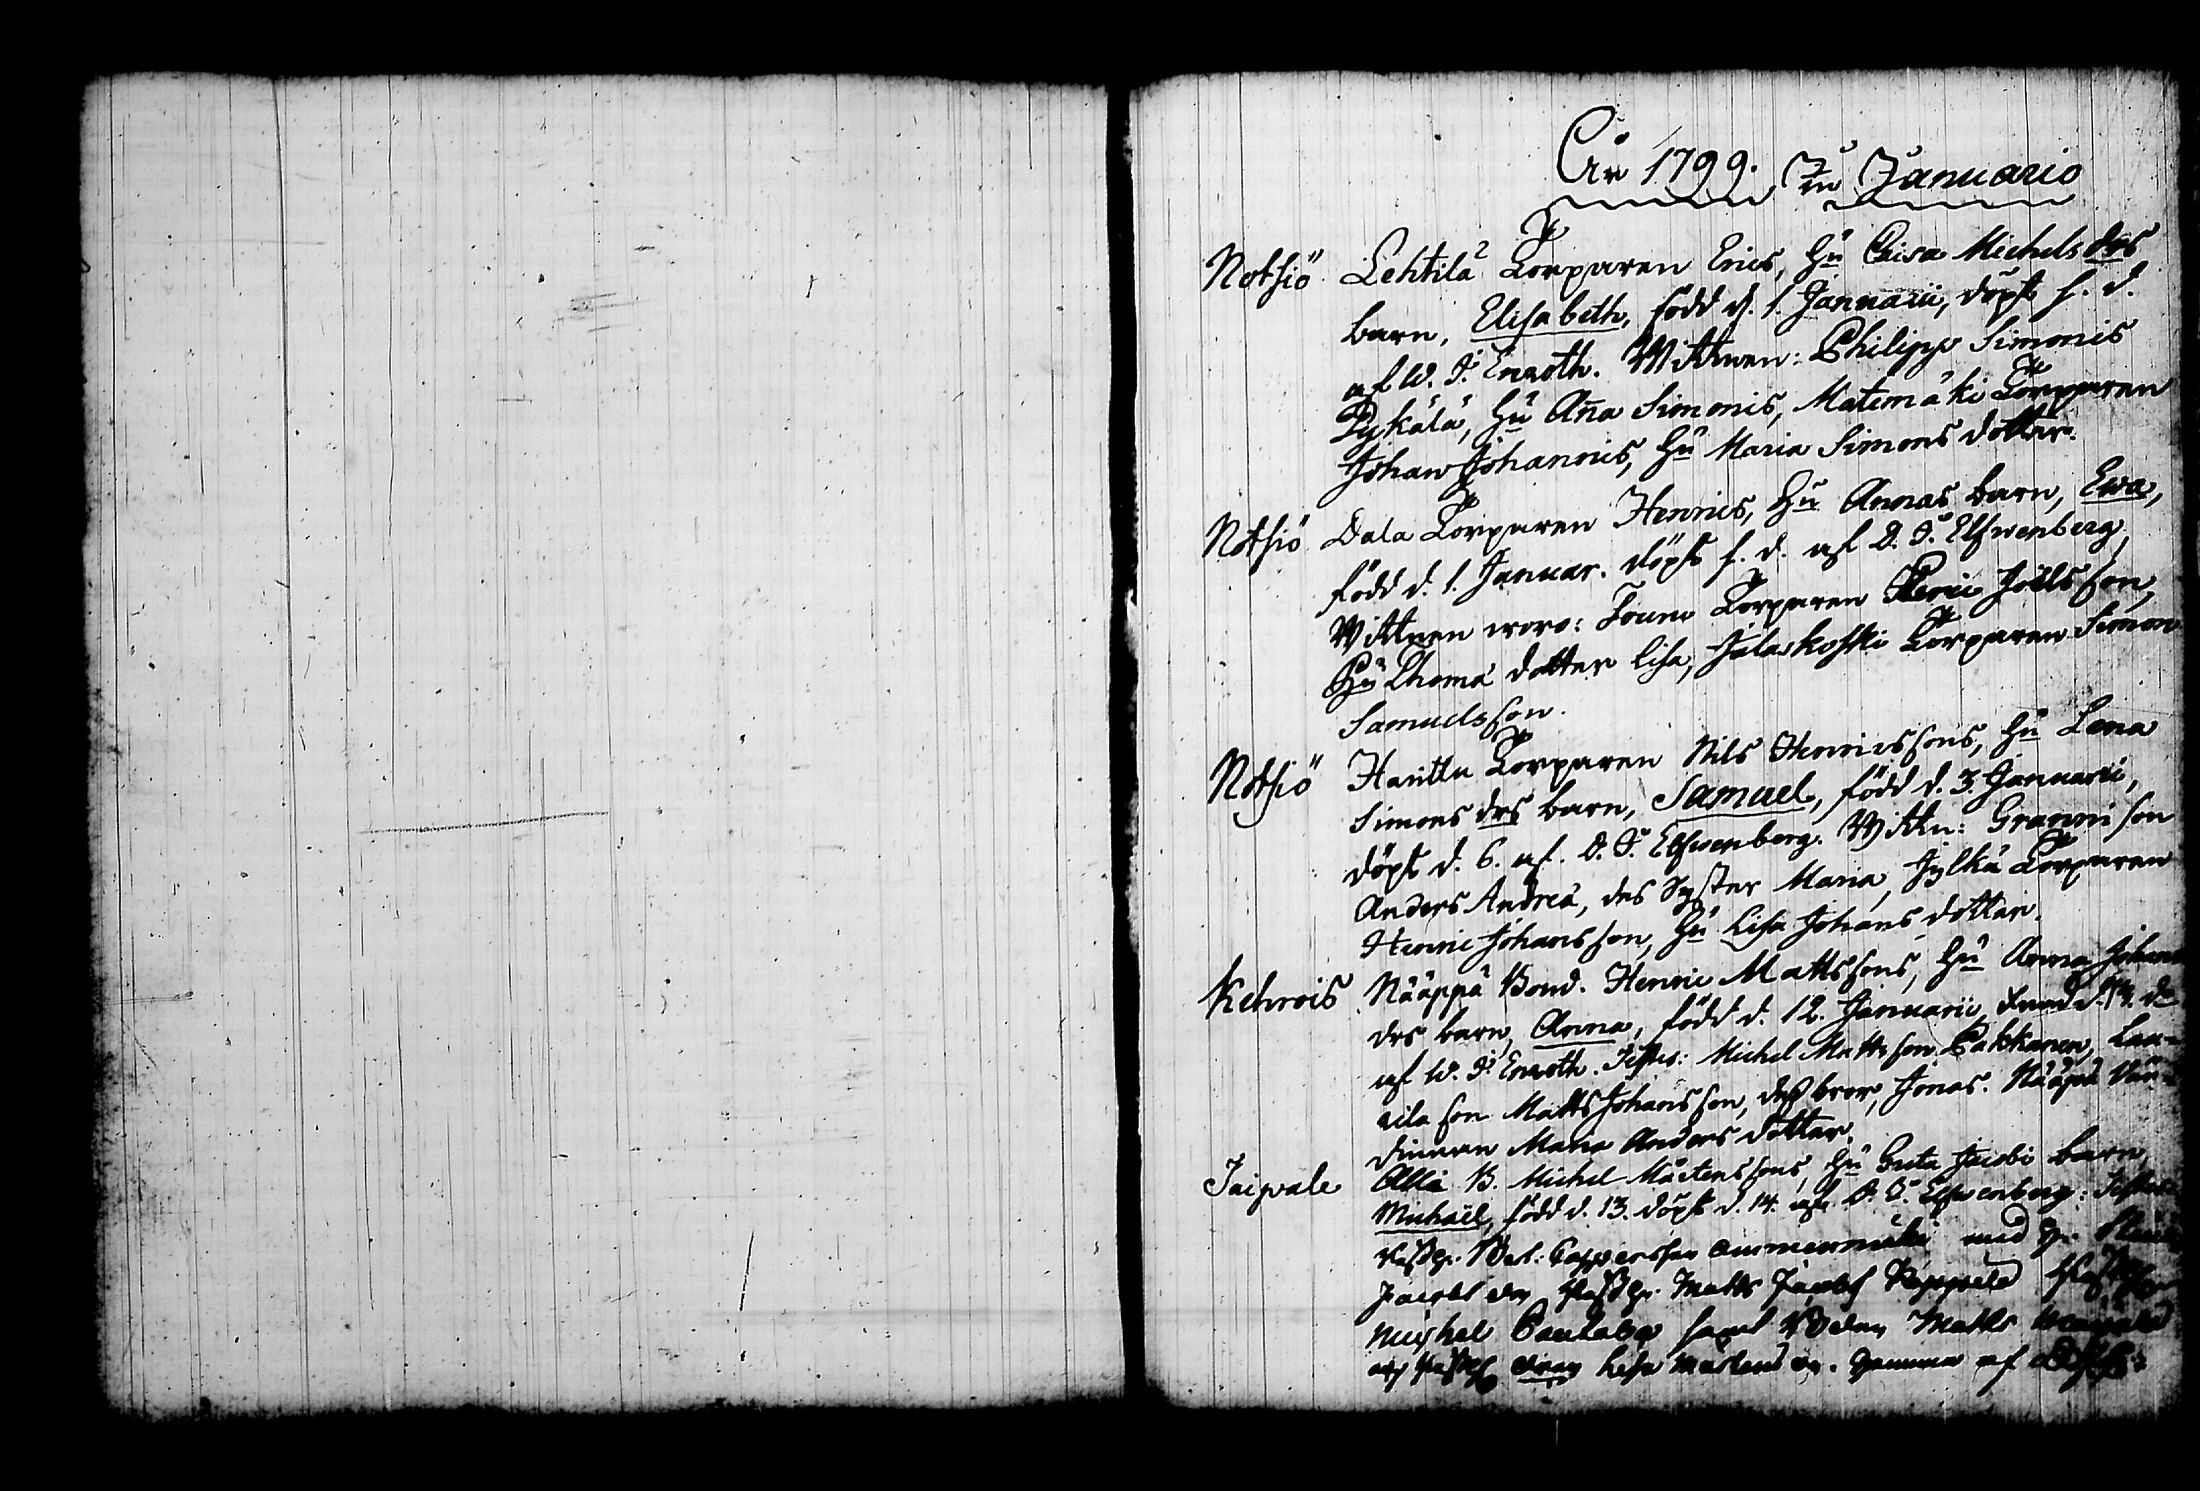 År 1799. In Januario
Notsiö Lehtilä Torparen Erics, Hu Caisa Michelsdrs
barn, Elisabeth, född d. 1. Januarii, döpt s. d.
af W. P. Enroth. Wittnen: Philipp Simonis
Pykälä, Hu Aña Simonis, Matimäki Torparen
Johan Johannis, Hu Maria Simons dotter.
Notsiö Dala Torparen Henrics, Hu Annas barn, Ewa,
född d. 1. Januar. döpt s. d. af D. P. Elfwenberg,
Wittnen woro: Torparen Joelsson,
Hu Thomæ dotter Lisa, Jalaskoski Torparen Simon
Samuelsson.
Notsiö Hanttu Torparen Nils Henricssons, Hu Lena
Simons drs barn, Samuel, född d. 3. Januarii,
döpt d. 6. af. D. P. Elfwenberg. Wittn: Granni son
Anders Andreæ, des Syster Maria, Jylhä Torparen
Henric Johansson, Hu Lisa Johans dotter.
Kehrois Nääppä Bond. Henric Mattssons, Hu Anna Johans
drs barn, Anna, född d. 12. Januarii,
af W. P. Enroth. Testes: Michel Mattsson Pakkanen, Lau-
rila son Matts Johansson, dess bror, Jonas. Nääpä
Maria Anders dotter.
Taipale Alla B. Michel Mårtenssons, Hu Greta Jacobi barn,
Michaël, född d. 13. döpt d. 14. af D. P. Elfwenberg: Testes
med
Jacobs Matts Jacobs
Michel samt Matts
Lisa Mårtens af